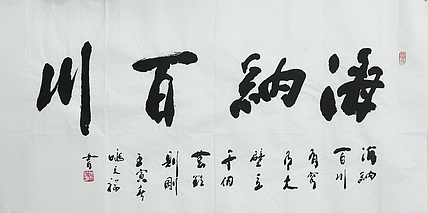 海納百川
海納
百川
有容
乃大
壁立
千仞
無欲
則剛
壬寅
書